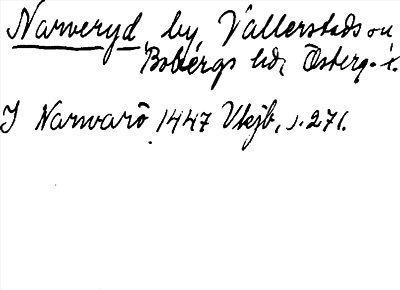 Narveryd, by Vallerstads sn
Bobergs hd, Österg. l.
I Narvarö 1447 Vkjb, s. 271.